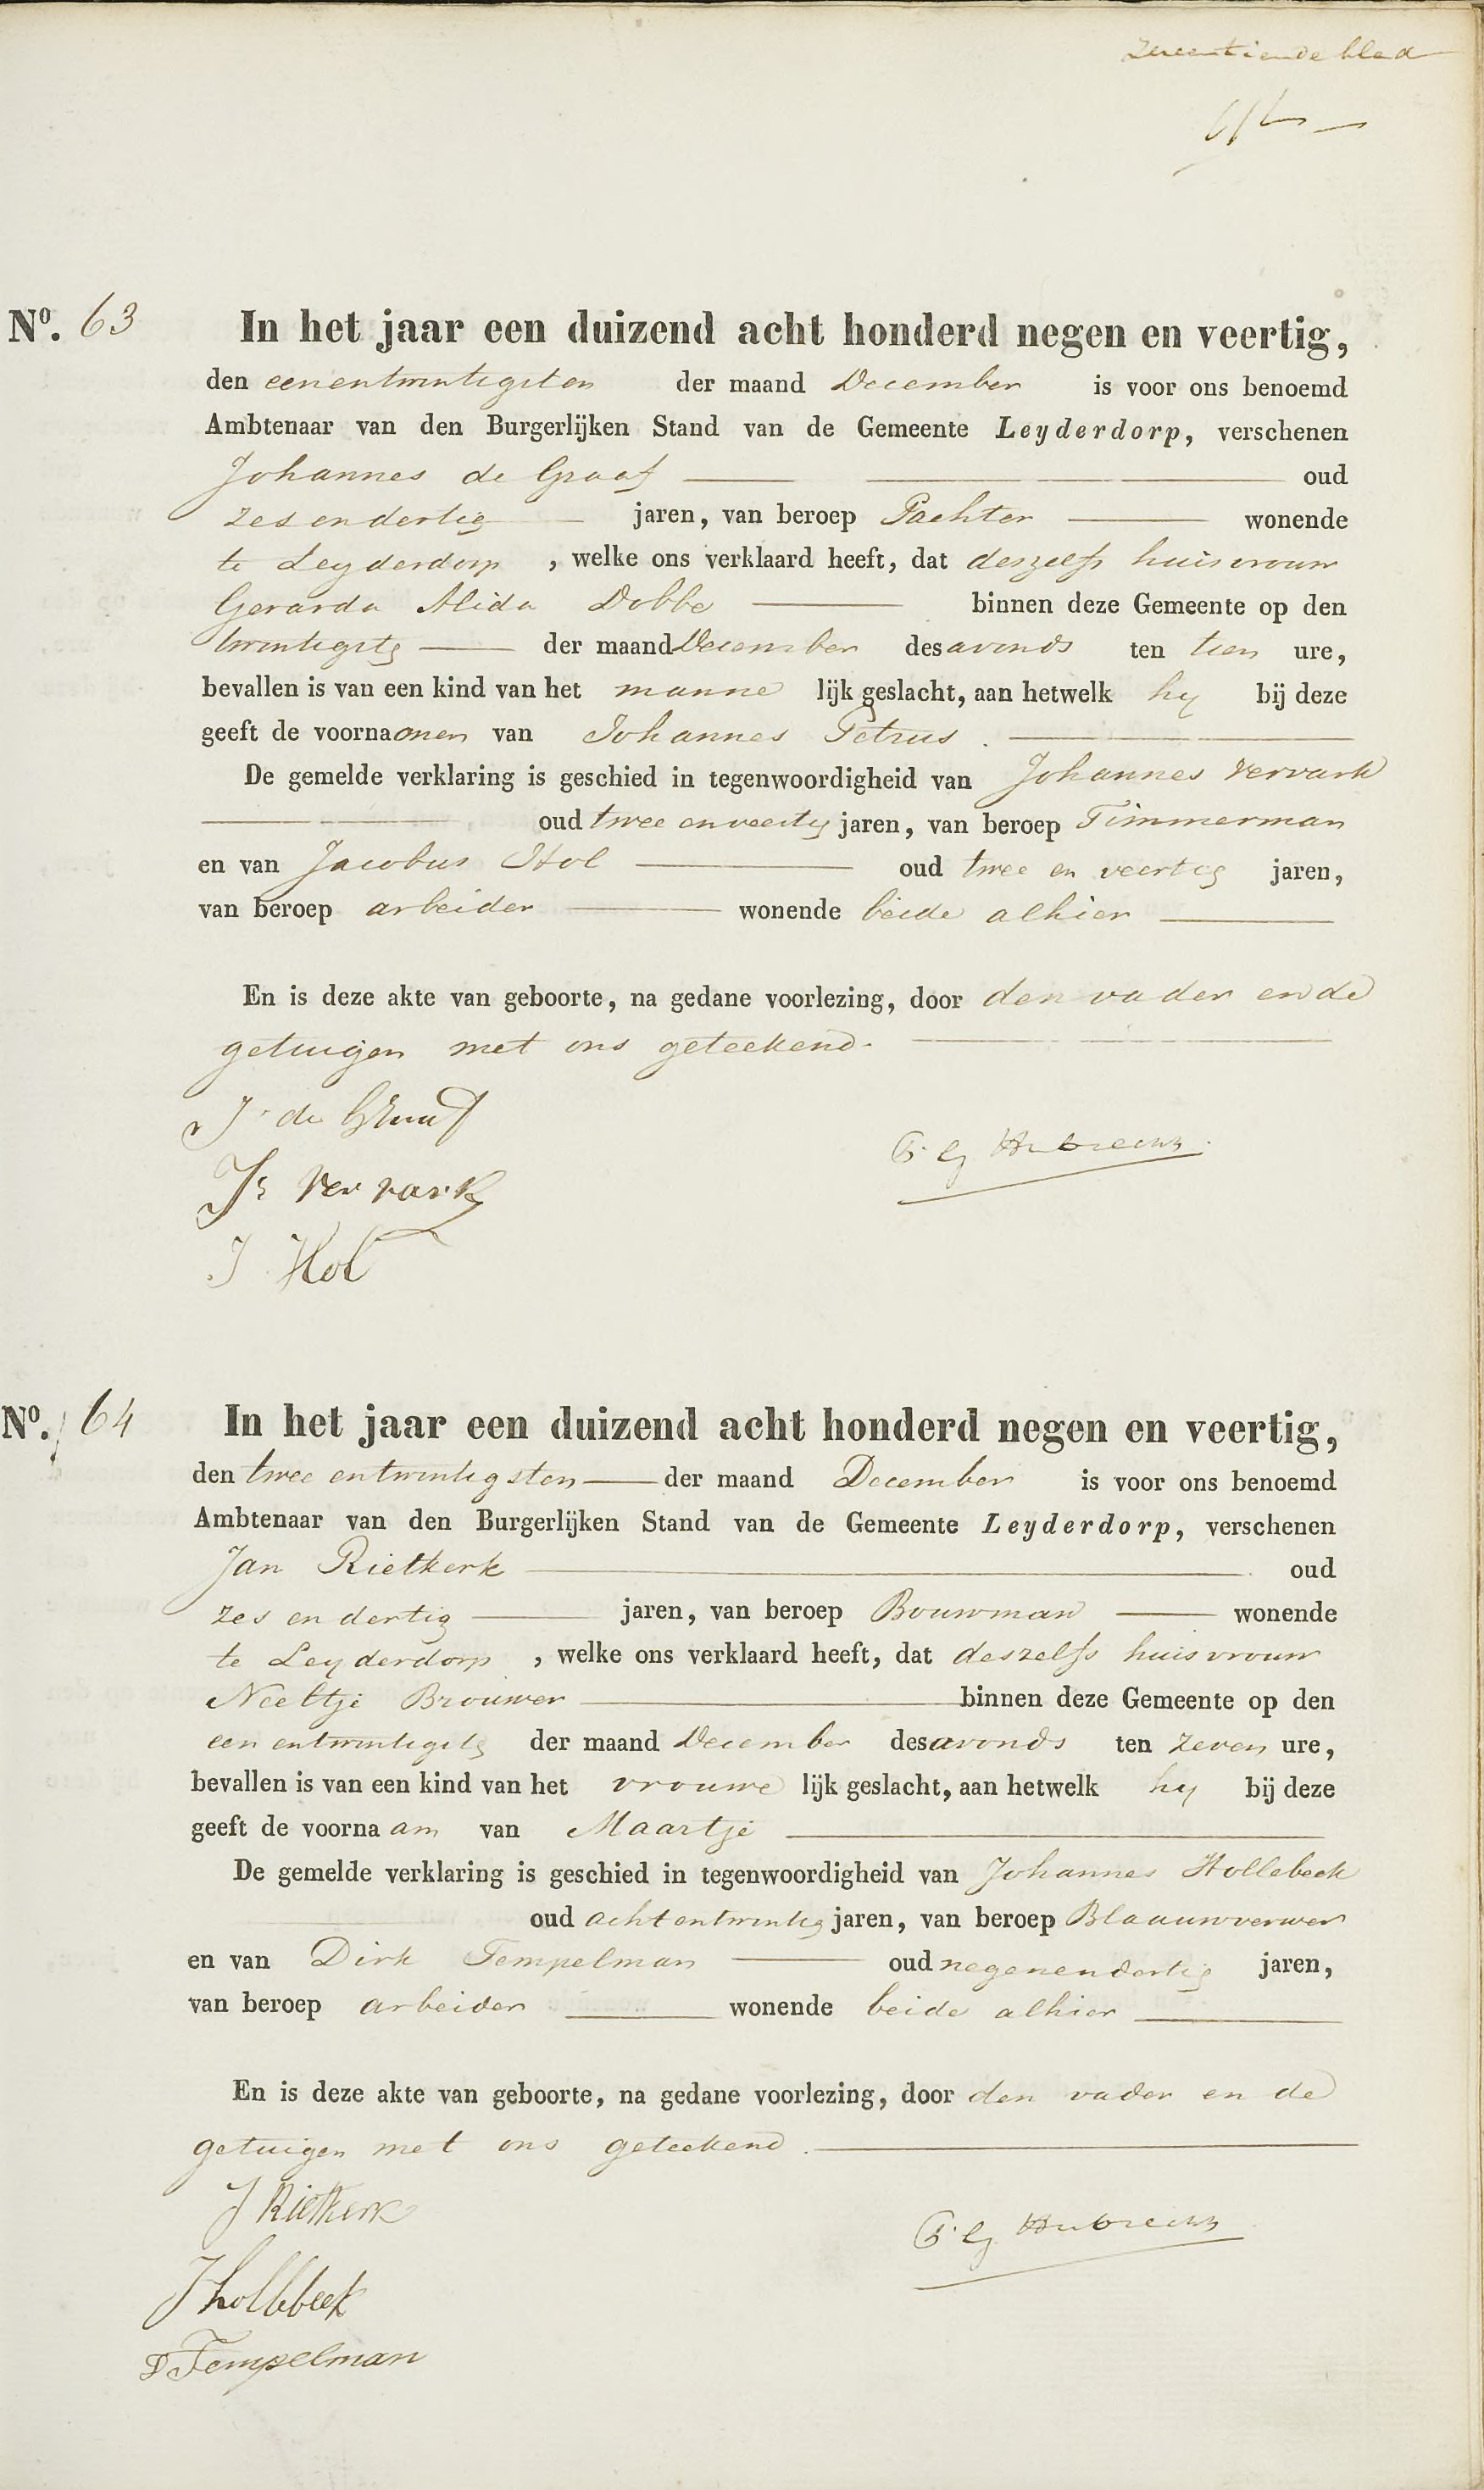 zeventiende blad
Nº. 63 In het jaar een duizend acht honderd negen en veertig,
den eenentwintigsten der maand December is voor ons benoemd
Ambtenaar van den Burgerlijken Stand van de Gemeente Leyderdorp, verschenen
Johannes de Graaf oud
zes en dertig jaren, van beroep Pachter wonende
te Leyderdorp, welke ons verklaard heeft, dat deszelfs huisvrouw
Gerarda Alida Dobbe binnen deze Gemeente op den
twintigste der maand December des avonds ten tien ure,
bevallen is van een kind van het manne lijk geslacht, aan hetwelk hy bij deze
geeft de voornaamen van Johannes Petrus.
De gemelde verklaring is geschied in tegenwoordigheid van Johannes Vervark
oud twee en veertig jaren, van beroep Timmerman
en van Jacobus Hol oud twee en veertig jaren,
van beroep arbeider wonende beide alhier
En is deze akte van geboorte, na gedane voorlezing, door den vader en de
getuigen met ons geteekend.
J. de Graaf
Js Ver vark
J Hol
Hubrecht
Nº. 64 In het jaar een duizend acht honderd negen en veertig,
den twee entwintigsten der maand December is voor ons benoemd
Ambtenaar van den Burgerlijken Stand van de Gemeente Leyderdorp, verschenen
Jan Rietkerk oud
zes en dertig jaren, van beroep Bouwman wonende
te Leyderdorp, welke ons verklaard heeft, dat deszelfs huisvrouw
Neeltje Brouwer binnen deze Gemeente op den
een entwintigste der maand December des avonds ten zeven ure,
bevallen is van een kind van het vrouwe lijk geslacht, aan hetwelk hy bij deze
geeft de voorna am van Maartje
De gemelde verklaring is geschied in tegenwoordigheid van Johannes Hollebeek
oud achtentwintig jaren, van beroep Blaauwverwer
en van Dirk Tempelman oud negenendertig jaren,
van beroep arbeider wonende beide alhier
En is deze akte van geboorte, na gedane voorlezing, door den vader en de
getuigen met ons geteekend.
J Rietkerk
Hubrecht
J hollebeek
D Tempelman